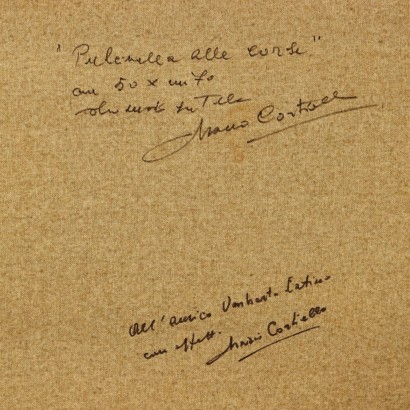 "Pulcinella alle corse"
cm 50 x cm 70
su Tela
Mario Cortiello
All'amico Umberto Latino
con affetto.
Mario Cortiello